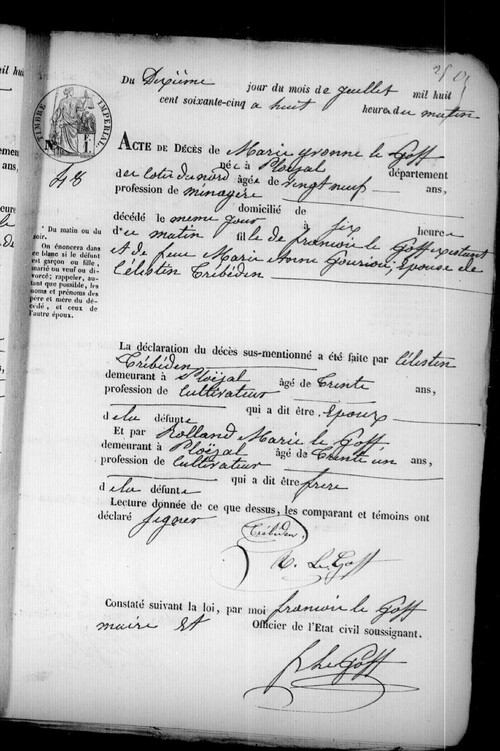 Du Dixième jour du mois de Juillet mil huit
cent soixante-cinq a huit heures du matin
TIMBRE IMPÉRIAL
N.º
48
ACTE DE DÉCÈS de Marie yvonne le Goff
née à Ploëzal département
des cotes du nord âgée de vingt neuf ans,
profession de ménagère
domicilié de
décédé le meme jour à six heures
d'ce matin fille de francois le Goff existant
et de feue Marie Anne Gouriou, Epouse de
Célestin Trébéden
* Du matin ou du
soir.
On énoncera dans
ce blanc si le défunt
est garçon ou fille,
marié ou veuf ou di-
vorcé; rappeler, au-
tant que possible, les
noms et prénoms des
père et mère du dé-
cédé, et ceux de
l'autre époux.
La déclaration du décès sus-mentionné a été faite par Célestin
Trébéden
demeurant à Ploëzal âgé de Trente ans,
profession de Cultivateur
qui a dit être, Epoux
d ela défunte
Et par Rolland Marie le Goff
demeurant à Ploëzal âgé de Trente un ans,
profession de Cultivateur
qui a dit être frere
d ela défunte
Lecture donnée de ce que dessus, les comparant et témoins ont
déclaré signer
Trébéden
R. Le Goff
Constaté suivant la loi, par moi francois le Goff
maire et Officier de l'Etat civil soussigné.
f Le Goff